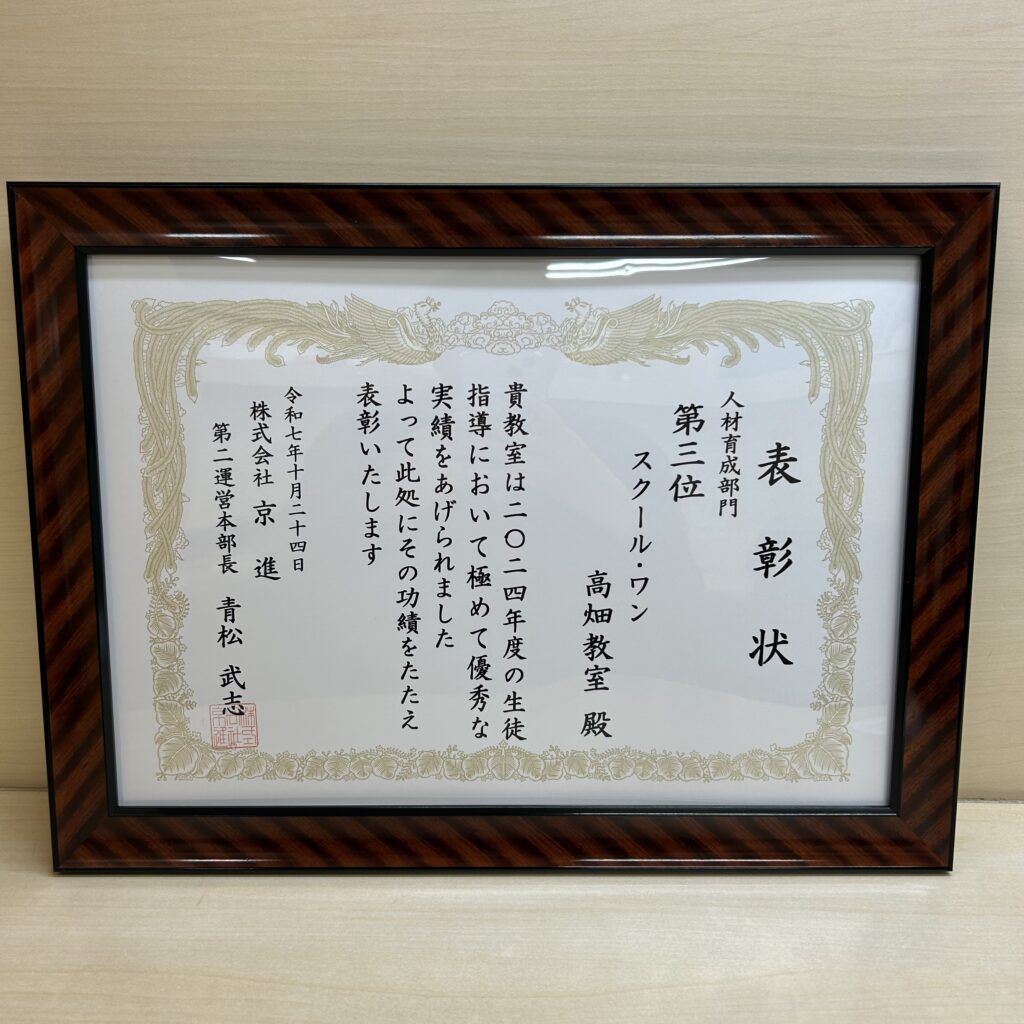 表彰状
人材育成部門
第三位
スクール・ワン
高畑教室 殿
貴教室は二〇二四年度の生徒
指導において極めて優秀な
実績をあげられました
よって此処にその功績をたたえ
表彰いたします
令和七年十月二十四日
株式会社 京進
第二運営本部長 青松 武志